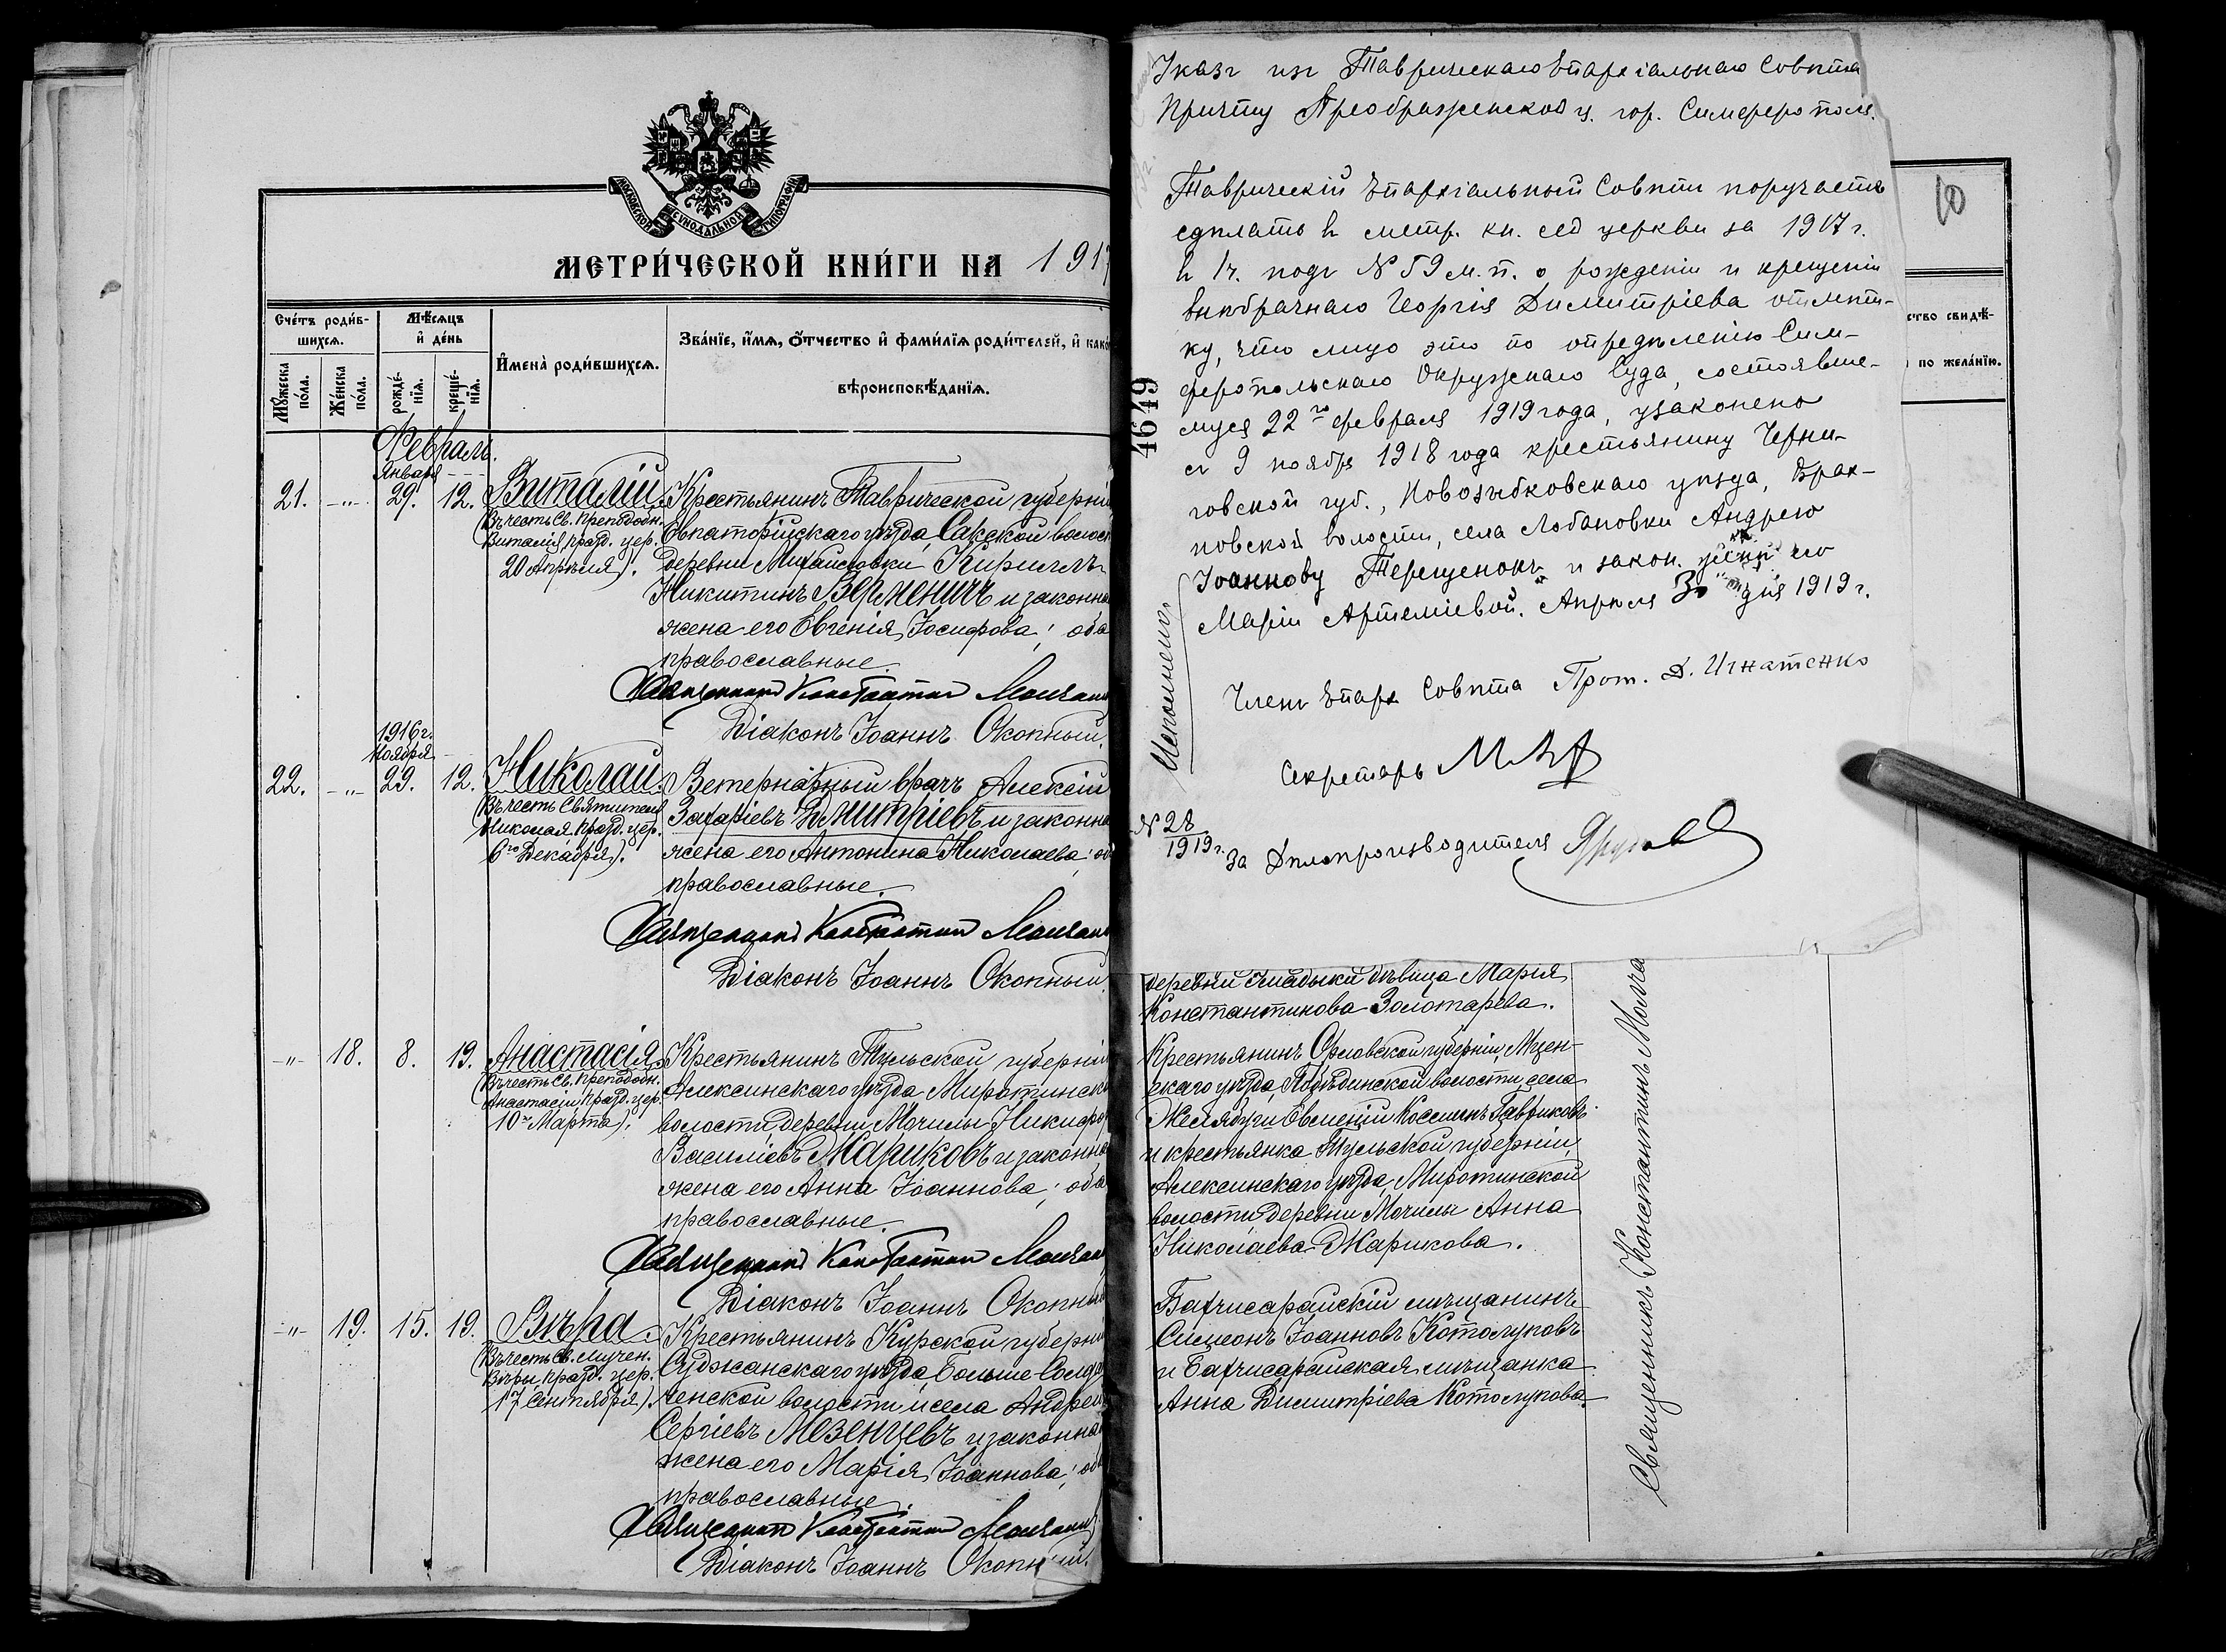 МОСКОВСКОЙ СѴНОДАЛЬНОЙ ТИПОГРАФІИ
МЕТРИ́ЧЕСКОЙ КНИ́ГИ НА 1917
Сче́тъ роди́в-
шихсѧ.
Мꙋ́жеска по́ла.
Же́нска по́ла.
Мѣ́сѧцъ
и҆ де́нь
рожде́-
нїѧ.
креще́-
нїѧ.
И҆мена̀ роди́вшихсѧ.
Зва́нїе, и҆́мѧ, ѻ҆́тчество и҆ фами́лїѧ роди́телей, и҆ как
вѣроисповѣ́данїѧ.
Февраль.
Января
21. -"- 29. 12. Виталій.
(Въ честь Св. Преподобн.
Виталія, празд. цер.
20 Апрѣля).
Крестьянинъ Таврической губерніи
Евпаторійскаго уѣзда, Сакской волост
деревни Михайловки Кириллъ
Никитинъ Верменичъ и законна
жена его Евгенія Іосифова; оба
православные.
Священникъ Константинъ Молчан
Діаконъ Іоаннъ Окопный.
1916 г.
Ноября
22. -"- 29. 12. Николай.
(Въ честь Святителя
Николая, празд. цер.
6го Декабря).
Ветеринарный врачъ Алексій
Захаріевъ Дмитріевъ и законна
жена его Антонина Николаева; об
православные.
Священникъ Константинъ Молчан
Діаконъ Іоаннъ Окопный.
-"- 18. 8. 19. Анастасія.
(Въ честь Св. Преподобн.
Анастасіи празд. цер.
10го Марта).
Крестьянинъ Тульской губерніи
Алексинскаго уѣзда Миротинско
волости, деревни Мочилы Никифор
Василіевъ Жариковъ и законна
жена его Анна Іоаннова; оба
православные.
Священникъ Константинъ Молчан
Діаконъ Іоаннъ Окопный
-"- 19. 15. 19. Вѣра.
(Въ честь Св. мучен.
Вѣры празд. цер.
17 Сентября).
Крестьянинъ Курской губерніи
Суджанскаго уѣзда, Больше Солдат
ченской волости и села Андрей
Сергіевъ Мезенцевъ и законна
жена его Марія Іоаннова; об
православные.
Священникъ Константинъ Молчан
Діаконъ Іоаннъ Окопный.
Указъ изъ Таврическаго Епархіальнаго Совѣта
Причту Преображенской ц. гор. Симферополя.
Таврическій Епархіальный Совѣтъ поручаетъ
сдѣлать въ метр. кн. сей церкви за 1917 г.
въ 1 ч. подъ № 59 м. п. о рожденіи и крещеніи
внѣбрачнаго Георгія Димитріева отмѣт-
ку, что лицо это по опредѣленію Сим-
феропольскаго Окружнаго Суда, состоявше-
муся 22го февраля 1919 года, узаконено
съ 9 ноября 1918 года крестьянину Черни-
говской губ., Новозыбковскаго уѣзда,
новской волости, села Лобановки Андрею
Іоаннову Терещенокъ и закон. женѣ его
Маріи Артеміевой. Апрѣля 30 дня 1919 г.
Членъ Епарх Совѣта Прот. Д. Игнатенко
Секретарь
№ 28
1919 г.
За Дѣлопроизводителя
Исполнено.
4649
10
ство свидѣ-
по жела́нїю.
деревни дѣвица Марія
Константинова Золотарева.
Крестьянинъ Орловской губерніи, Мцен-
скаго уѣзда, волости, села
Желябуги Евменій Космынъ Гавриковъ
и крестьянка Тульской губерніи,
Алексинскаго уѣзда, Миротинской
волости, деревни Мочилы Анна
Николаева Жарикова.
Бахчисарайскій мѣщанинъ
Симеонъ Іоанновъ Котолуповъ
и Бахчисарайская мѣщанка
Анна Димитріева Котолупова.
Священникъ Константинъ Молча